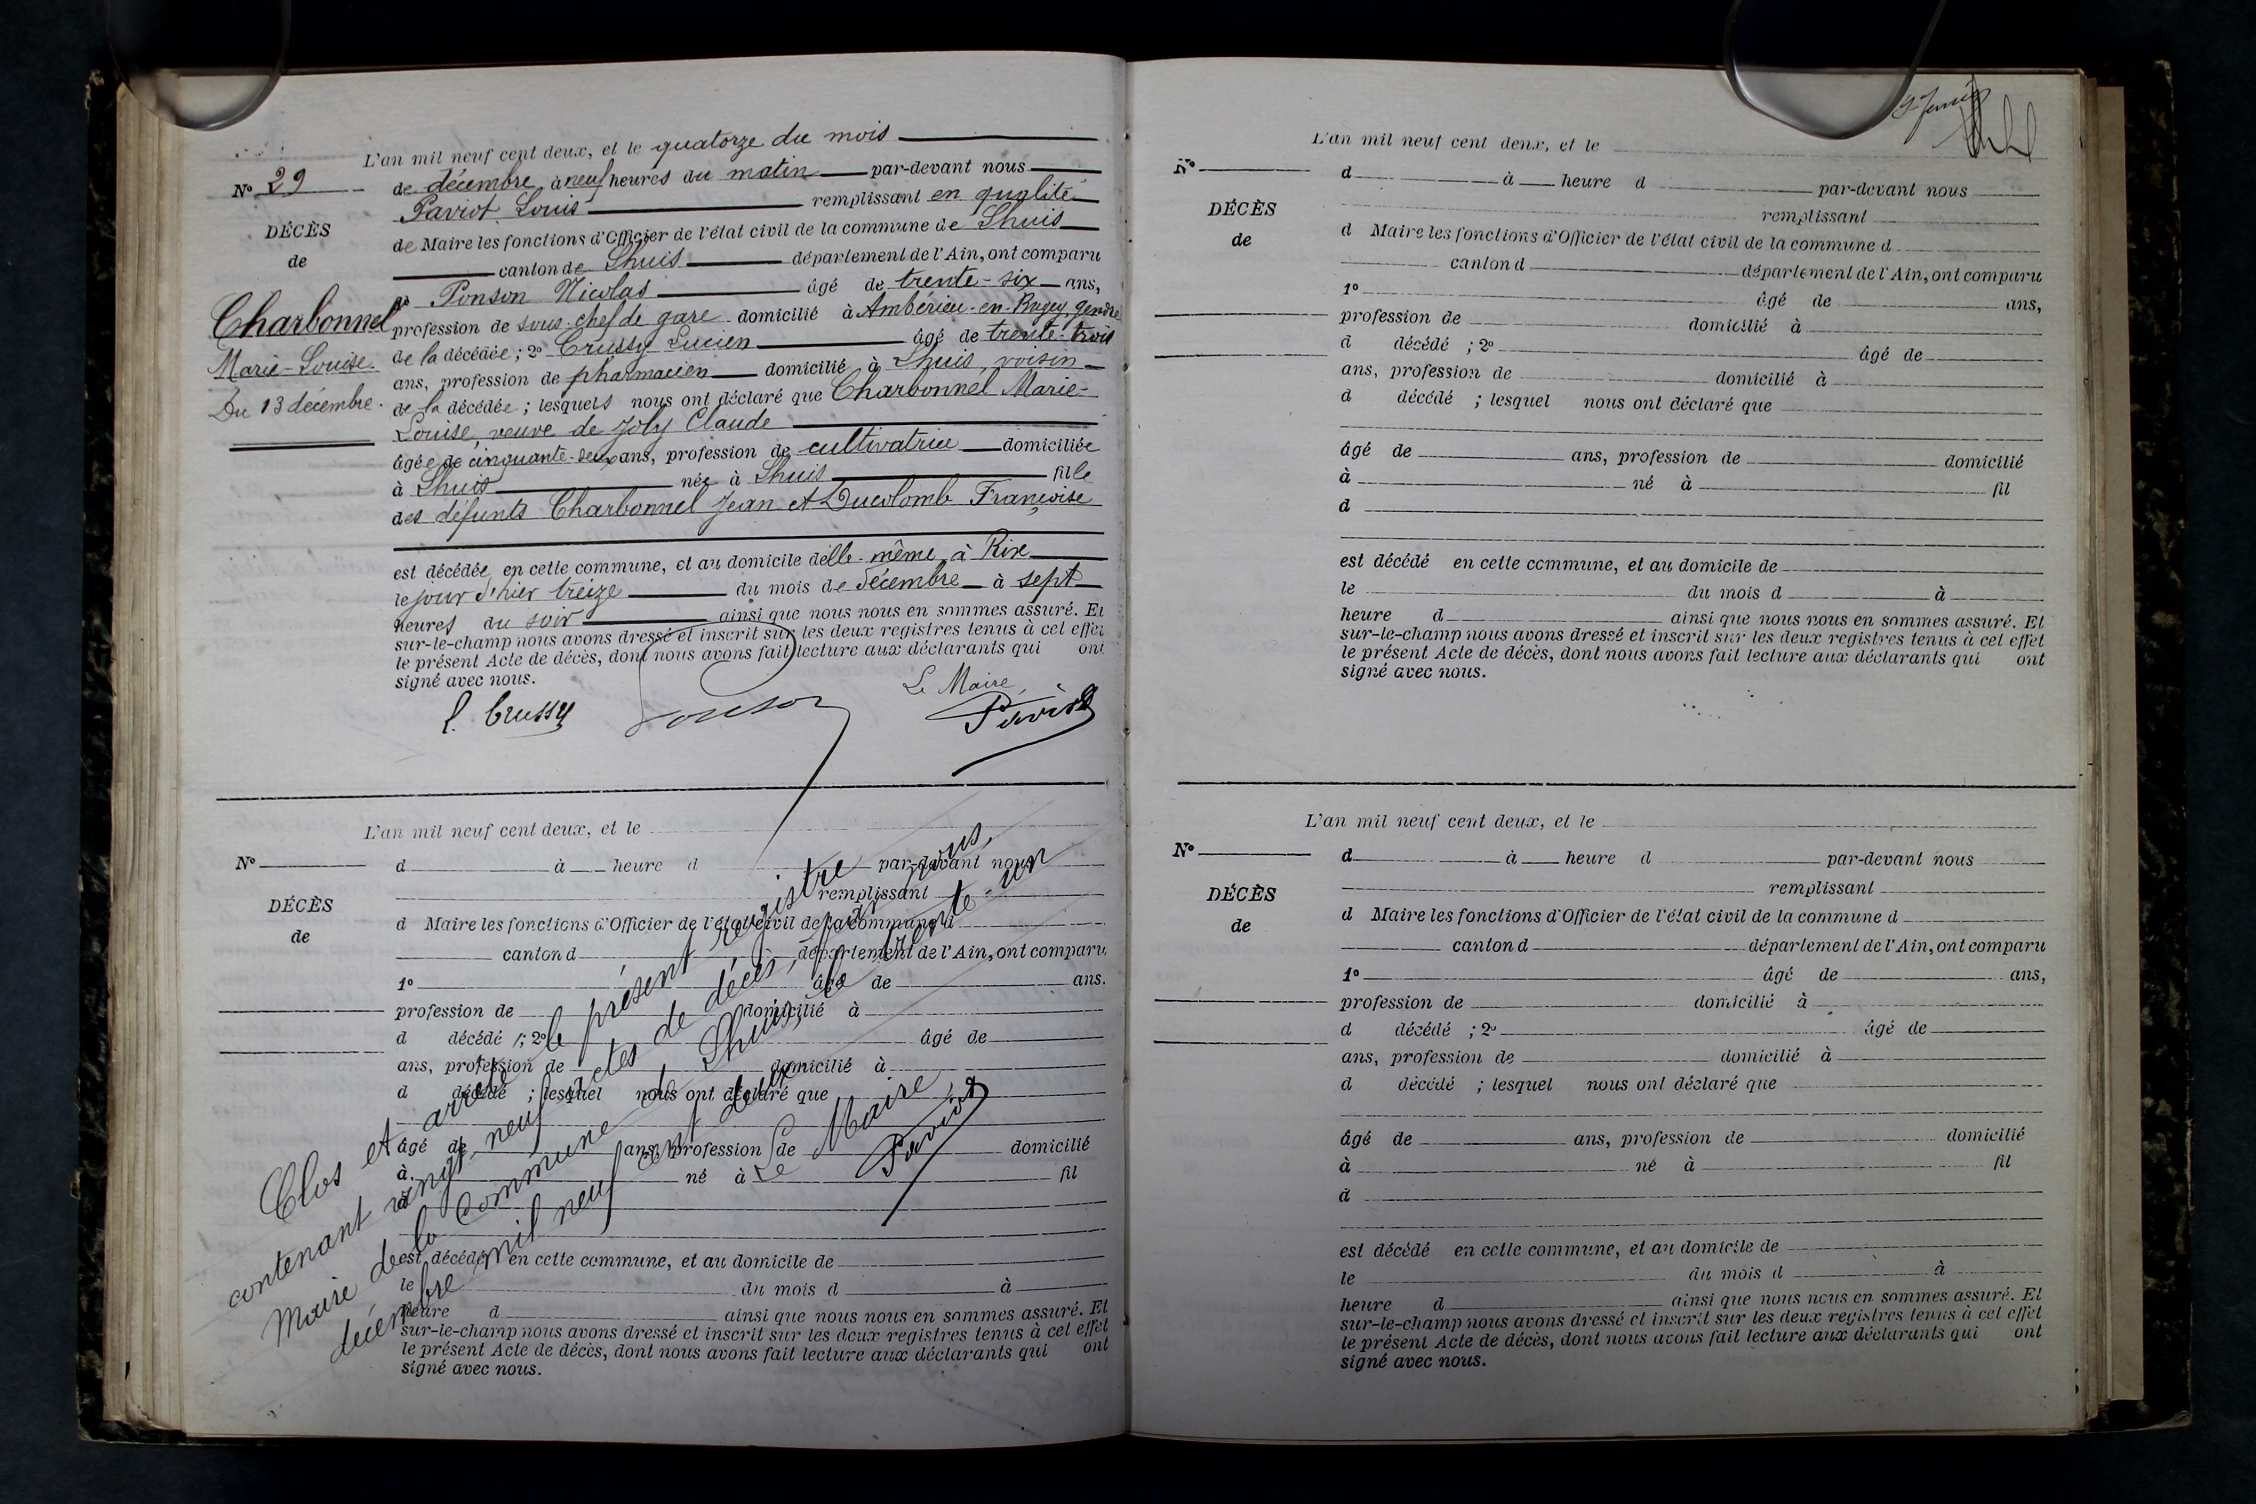 L'an mil neuf cent deux, et le quatorze du mois
N° 29
de décembre, à neuf heures du matin par-devant nous
Paviot Louis remplissant en qualité
DÉCÈS
de Maire les fonctions d'Officier de l'état civil de la commune de Lhuis
de
canton de Lhuis département de l'Ain, ont comparu
1° Ponson Nicolas âgé de trente-six ans,
Charbonnel
profession de sous-chef de gare domicilié à Ambérieu-en-Bugey, gendre
Marie-Louise.
de la décédée ; 2° Crussy Lucien âgé de trente-trois
ans, profession de pharmacien domicilié à Lhuis, voisin
Du 13 décembre.
de la décédée ; lesquels nous ont déclaré que Charbonnel Marie-
Louise, veuve de Joly Claude
âgée de cinquante-deux ans, profession de cultivatrice domiciliée
à Lhuis née à Lhuis fille
des défunts Charbonnel Jean et Ducolomb Françoise
est décédée en cette commune, et au domicile d'elle-même, à Rix
le jour d'hier treize du mois de décembre à sept
heures du soir ainsi que nous nous en sommes assuré. Et
sur-le-champ nous avons dressé et inscrit sur les deux registres tenus à cet effet
le présent Acte de décès, dont nous avons fait lecture aux déclarants qui ont
signé avec nous.
Le Maire,
L. Crussy Ponson Paviot
L'an mil neuf cent deux, et le
N°
d à heure d par-devant nous
remplissant
DÉCÈS
d Maire les fonctions d'Officier de l'état civil de la commune d
de
canton d département de l'Ain, ont comparu
1° âgé de ans.
profession de domicilié à
d décédé ; 2° âgé de
ans, profession de domicilié à
d décédé ; lesquel nous ont déclaré que
âgé de ans, profession de domicilié
à né à fil
d
est décédé en cette commune, et au domicile de
le du mois d à
heure d ainsi que nous nous en sommes assuré. Et
sur-le-champ nous avons dressé et inscrit sur les deux registres tenus à cet effet
le présent Acte de décès, dont nous avons fait lecture aux déclarants qui ont
signé avec nous.
Clos et arrêté le présent registre
contenant vingt-neuf actes de décès, par nous,
Maire de la commune de Lhuis, le trente-un
décembre mil neuf cent deux
Le Maire,
Paviot
L'an mil neuf cent deux, et le
N°
d à heure d par-devant nous
remplissant
DÉCÈS
d Maire les fonctions d'Officier de l'état civil de la commune d
de
canton d département de l'Ain, ont comparu
1° âgé de ans,
profession de domicilié à
d décédé ; 2° âgé de
ans, profession de domicilié à
d décédé ; lesquel nous ont déclaré que
âgé de ans, profession de domicilié
à né à fil
d
est décédé en cette commune, et au domicile de
le du mois d à
heure d ainsi que nous nous en sommes assuré. Et
sur-le-champ nous avons dressé et inscrit sur les deux registres tenus à cet effet
le présent Acte de décès, dont nous avons fait lecture aux déclarants qui ont
signé avec nous.
L'an mil neuf cent deux, et le
N°
d à heure d par-devant nous
remplissant
DÉCÈS
d Maire les fonctions d'Officier de l'état civil de la commune d
de
canton d département de l'Ain, ont comparu
1° âgé de ans,
profession de domicilié à
d décédé ; 2° âgé de
ans, profession de domicilié à
d décédé ; lesquel nous ont déclaré que
âgé de ans, profession de domicilié
à né à fil
d
est décédé en cette commune, et au domicile de
le du mois d à
heure d ainsi que nous nous en sommes assuré. Et
sur-le-champ nous avons dressé et inscrit sur les deux registres tenus à cet effet
le présent Acte de décès, dont nous avons fait lecture aux déclarants qui ont
signé avec nous.